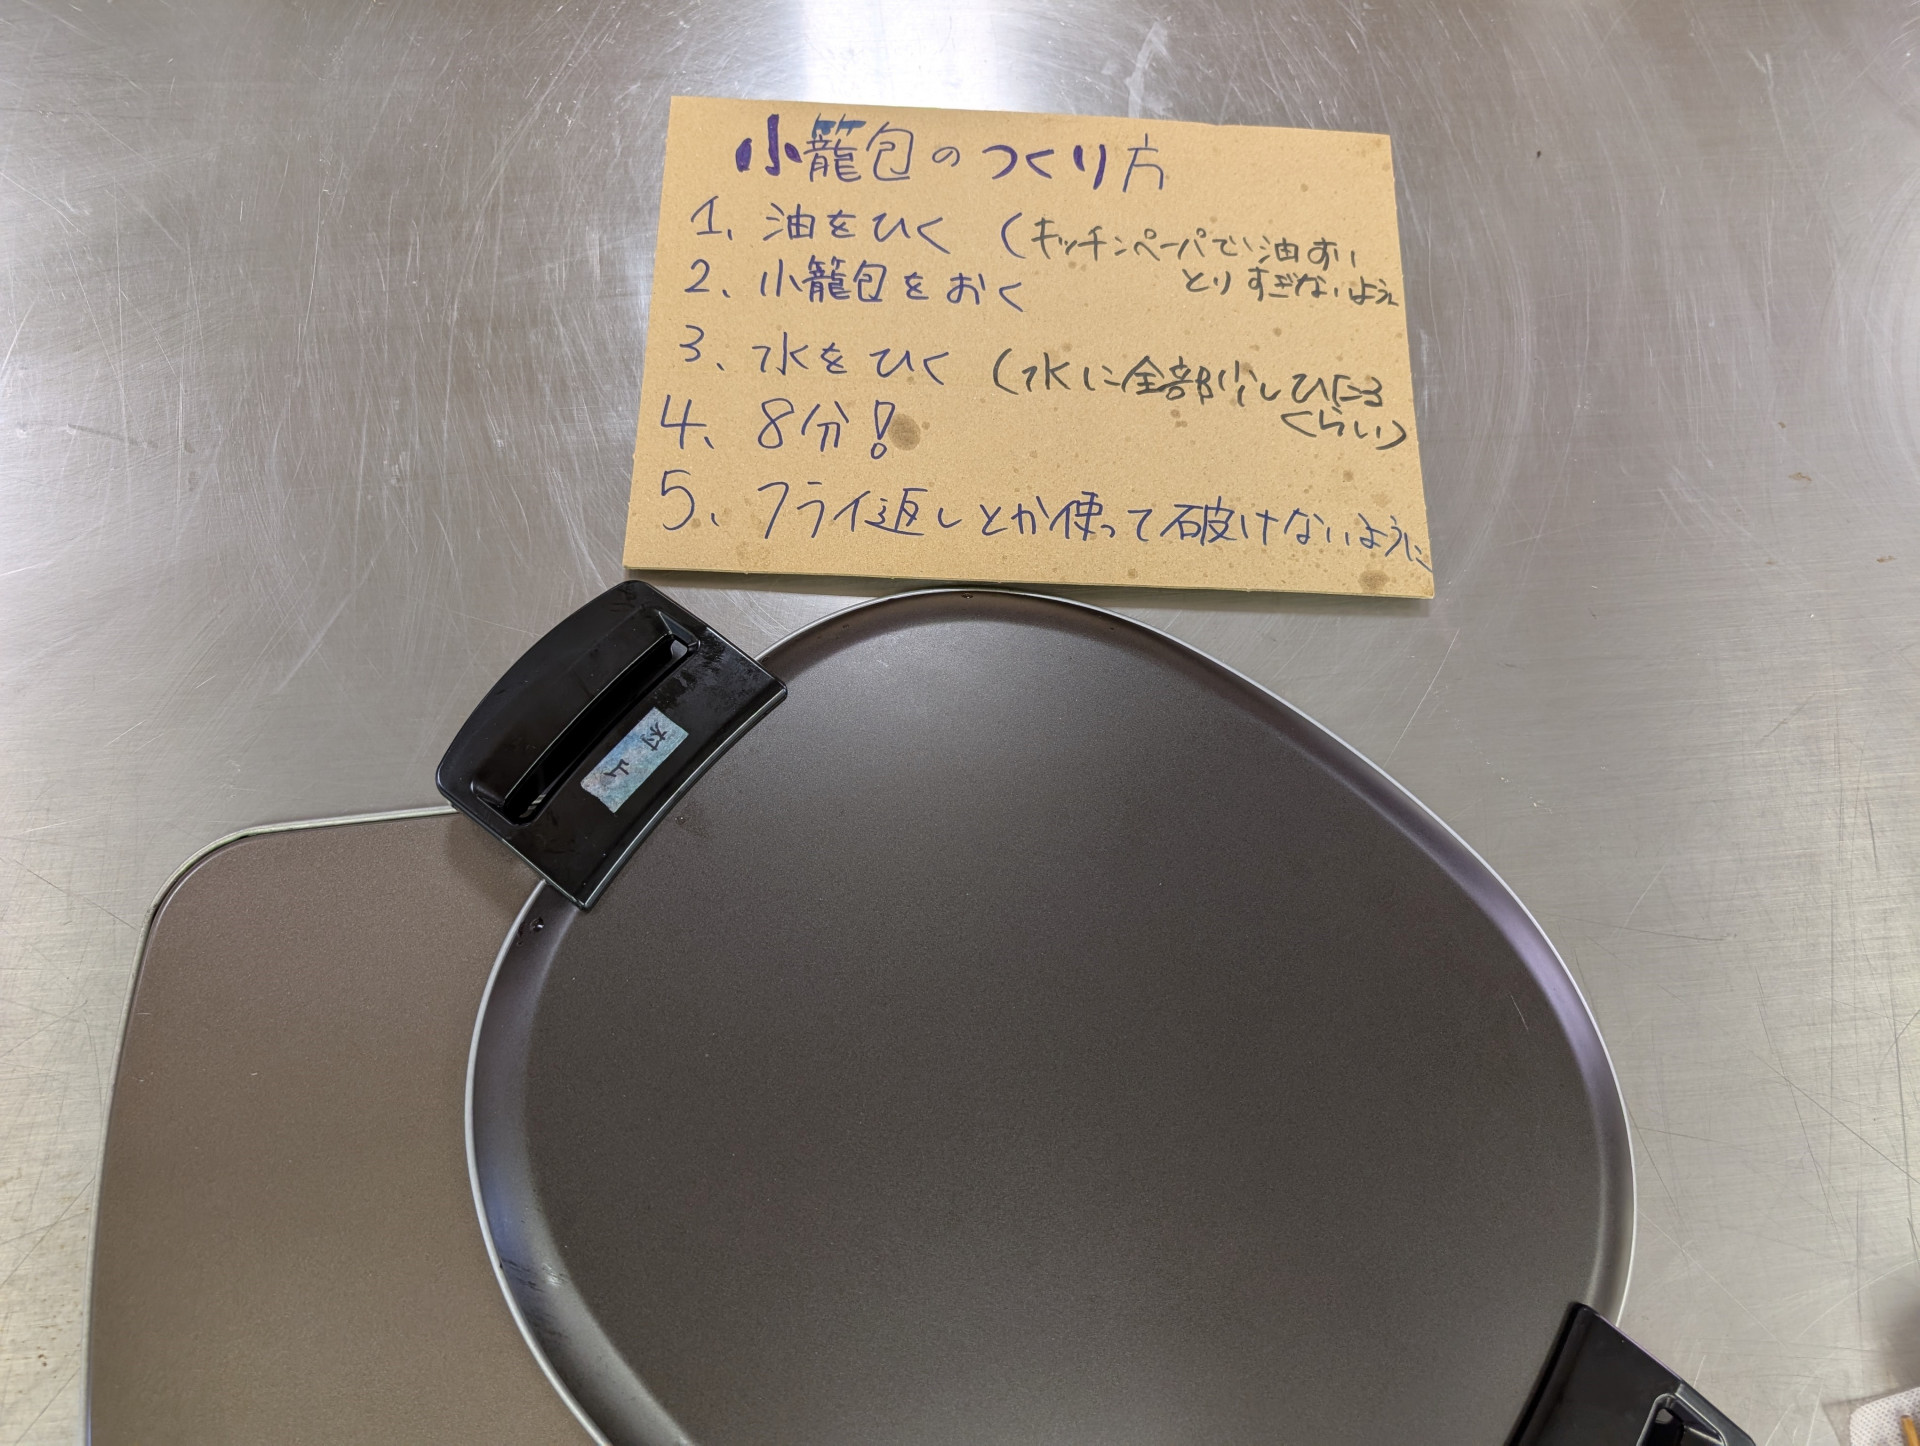 小籠包のつくり方
1、油をひく (キッチンペーパで油すい
とりすぎないように
2、小籠包をおく
3、水をひく (水に全部少しひたる
くらい)
4、8分!
5、フライ返しとか使って破けないように
村山